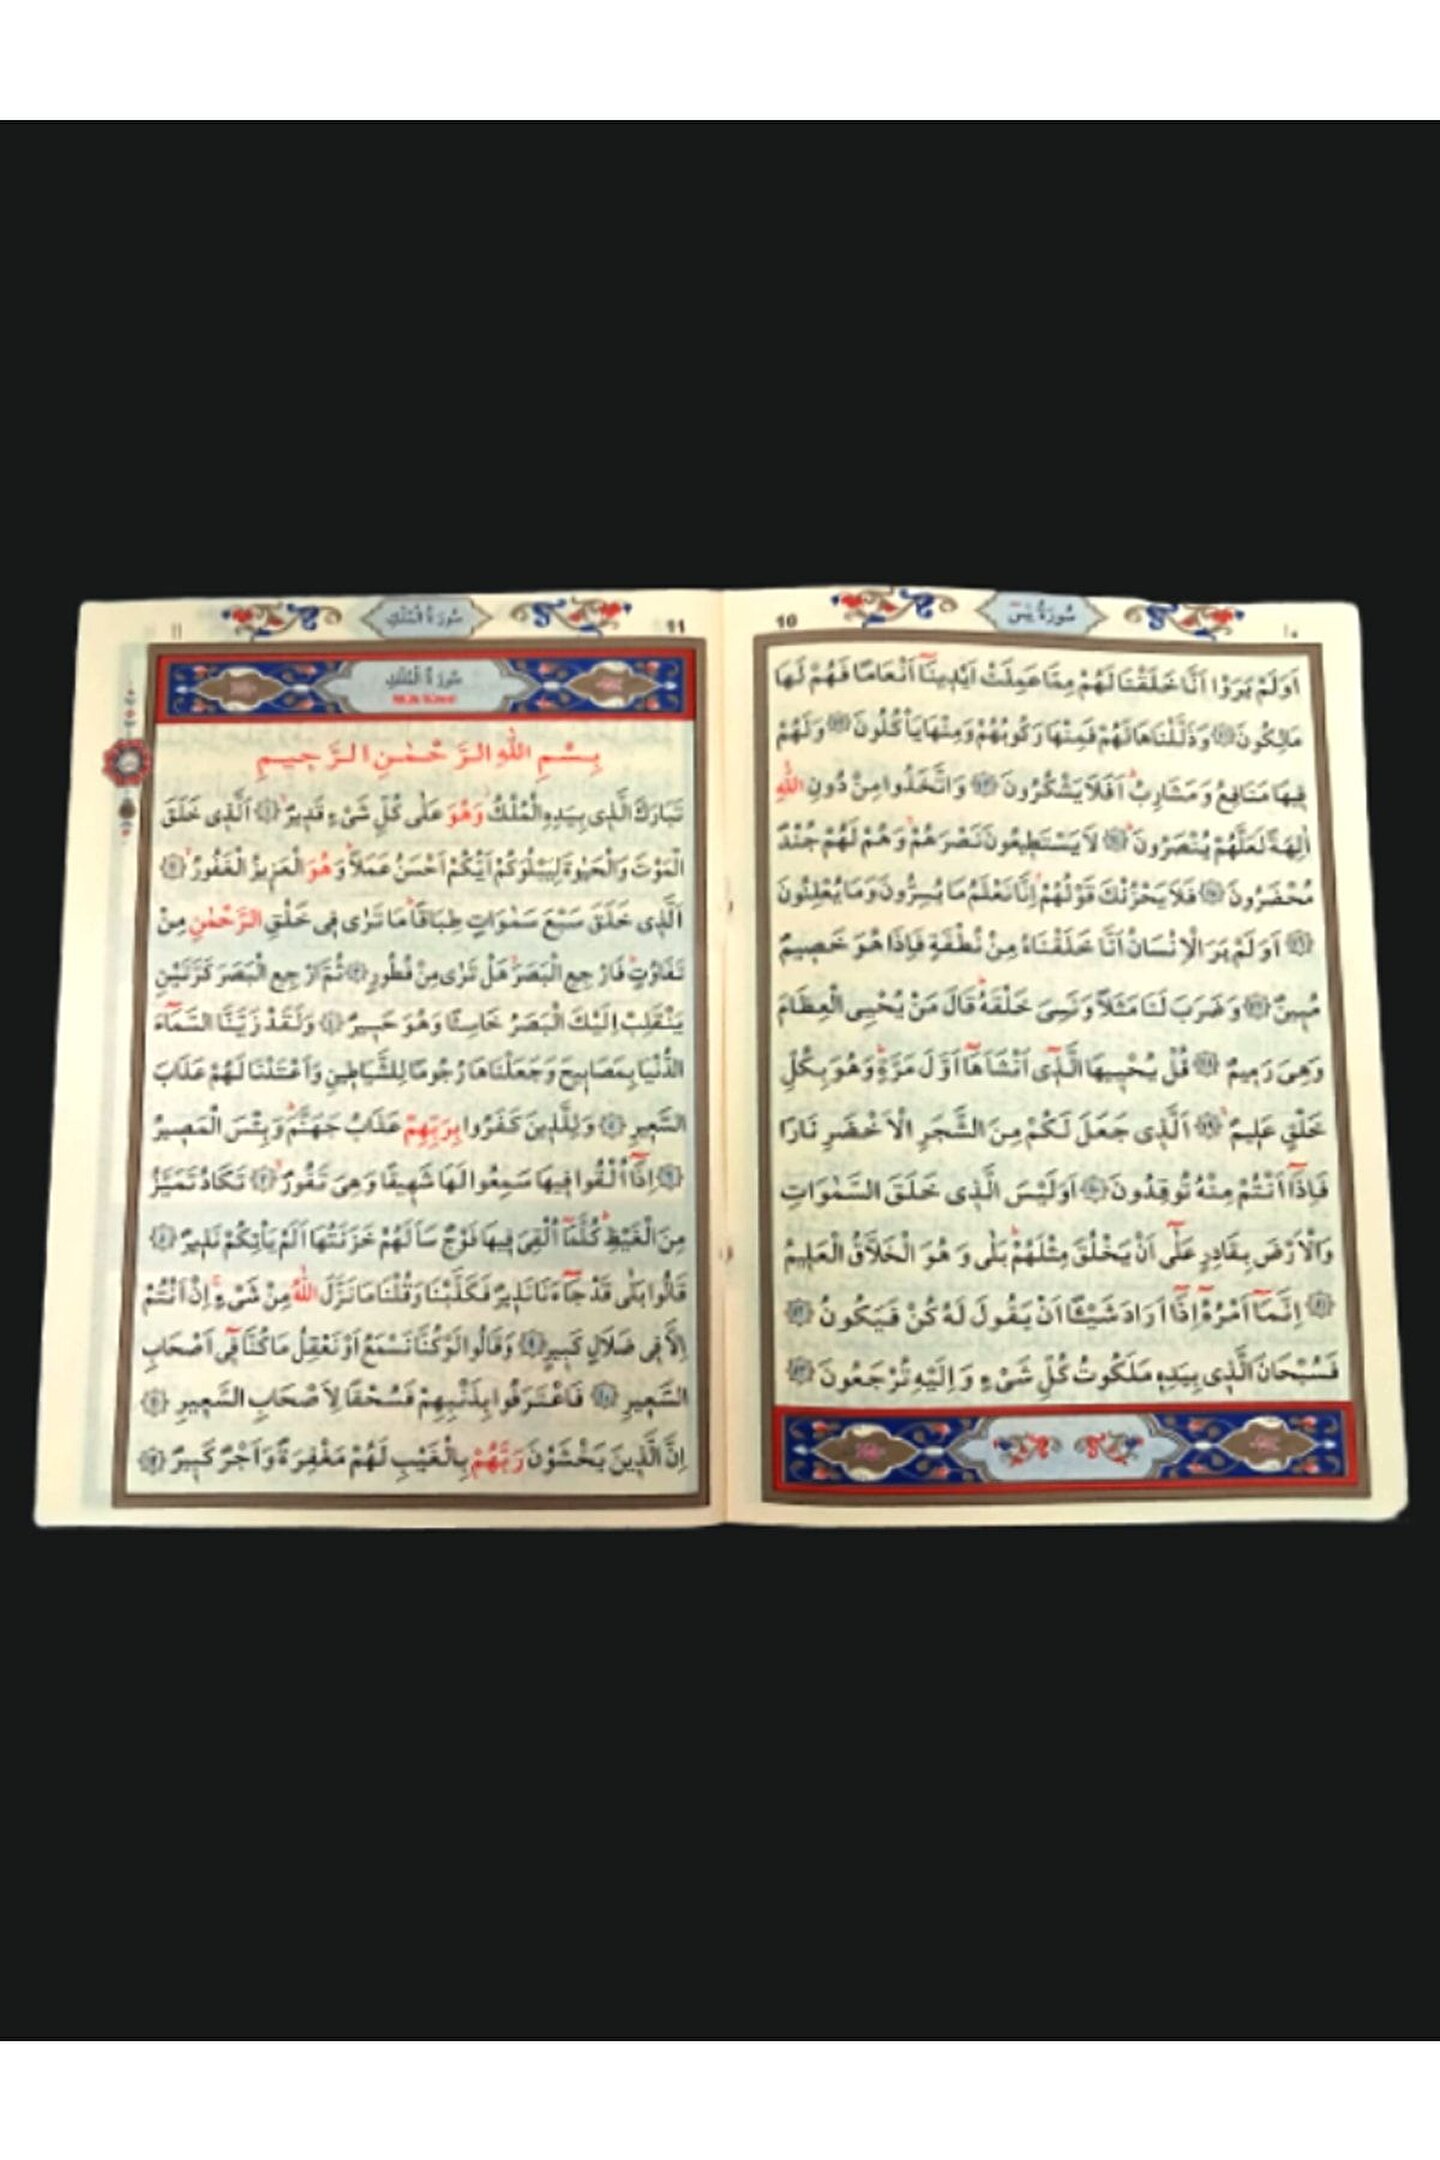 سُورَةُ يٰسٓ
10
١٠
اَوَلَمْ يَرَوْا اَنَّا خَلَقْنَا لَهُمْ مِمَّا عَمِلَتْ اَيْدِينَٓا اَنْعَامًا فَهُمْ لَهَا
مَالِكُونَ ﴿٧١﴾ وَذَلَّلْنَاهَا لَهُمْ فَمِنْهَا رَكُوبُهُمْ وَمِنْهَا يَأْكُلُونَ ﴿٧٢﴾ وَلَهُمْ
فِيهَا مَنَافِعُ وَمَشَارِبُۜ اَفَلَا يَشْكُرُونَ ﴿٧٣﴾ وَاتَّخَذُوا مِنْ دُونِ اللّٰهِ
اٰلِهَةً لَعَلَّهُمْ يُنْصَرُونَۜ ﴿٧٤﴾ لَا يَسْتَطِيعُونَ نَصْرَهُمْۙ وَهُمْ لَهُمْ جُنْدٌ
مُحْضَرُونَ ﴿٧٥﴾ فَلَا يَحْزُنْكَ قَوْلُهُمْۢ اِنَّا نَعْلَمُ مَا يُسِرُّونَ وَمَا يُعْلِنُونَ
﴿٧٦﴾ اَوَلَمْ يَرَ الْاِنْسَانُ اَنَّا خَلَقْنَاهُ مِنْ نُطْفَةٍ فَاِذَا هُوَ خَصِيمٌ
مُبِينٌ ﴿٧٧﴾ وَضَرَبَ لَنَا مَثَلًا وَنَسِيَ خَلْقَهُۜ قَالَ مَنْ يُحْيِي الْعِظَامَ
وَهِيَ رَمِيمٌ ﴿٧٨﴾ قُلْ يُحْيِيهَا الَّذِٓي اَنْشَاَهَٓا اَوَّلَ مَرَّةٍۜ وَهُوَ بِكُلِّ
خَلْقٍ عَلِيمٌۙ ﴿٧٩﴾ اَلَّذِي جَعَلَ لَكُمْ مِنَ الشَّجَرِ الْاَخْضَرِ نَارًا
فَاِذَٓا اَنْتُمْ مِنْهُ تُوقِدُونَ ﴿٨٠﴾ اَوَلَيْسَ الَّذِي خَلَقَ السَّمٰوَاتِ
وَالْاَرْضَ بِقَادِرٍ عَلٰٓى اَنْ يَخْلُقَ مِثْلَهُمْۜ بَلٰى وَهُوَ الْخَلَّاقُ الْعَلِيمُ
﴿٨١﴾ اِنَّمَٓا اَمْرُهُٓ اِذَٓا اَرَادَ شَيْئًا اَنْ يَقُولَ لَهُ كُنْ فَيَكُونُ ﴿٨٢﴾
فَسُبْحَانَ الَّذِي بِيَدِهِ مَلَكُوتُ كُلِّ شَيْءٍ وَاِلَيْهِ تُرْجَعُونَ ﴿٨٣﴾
سُورَةُ الْمُلْكِ
11
١١
سُورَةُ الْمُلْكِ
بِسْمِ اللّٰهِ الرَّحْمٰنِ الرَّحِيمِ
تَبَارَكَ الَّذِي بِيَدِهِ الْمُلْكُۘ وَهُوَ عَلٰى كُلِّ شَيْءٍ قَدِيرٌۙ ﴿١﴾ اَلَّذِي خَلَقَ
الْمَوْتَ وَالْحَيٰوةَ لِيَبْلُوَكُمْ اَيُّكُمْ اَحْسَنُ عَمَلًاۜ وَهُوَ الْعَزِيزُ الْغَفُورُۙ ﴿٢﴾
اَلَّذِي خَلَقَ سَبْعَ سَمٰوَاتٍ طِبَاقًاۜ مَا تَرٰى فِي خَلْقِ الرَّحْمٰنِ مِنْ
تَفَاوُتٍۜ فَارْجِعِ الْبَصَرَۙ هَلْ تَرٰى مِنْ فُطُورٍ ﴿٣﴾ ثُمَّ ارْجِعِ الْبَصَرَ كَرَّتَيْنِ
يَنْقَلِبْ اِلَيْكَ الْبَصَرُ خَاسِئًا وَهُوَ حَسِيرٌ ﴿٤﴾ وَلَقَدْ زَيَّنَّا السَّمَٓاءَ
الدُّنْيَا بِمَصَابِيحَ وَجَعَلْنَاهَا رُجُومًا لِلشَّيَاطِينِ وَاَعْتَدْنَا لَهُمْ عَذَابَ
السَّعِيرِ ﴿٥﴾ وَلِلَّذِينَ كَفَرُوا بِرَبِّهِمْ عَذَابُ جَهَنَّمَۜ وَبِئْسَ الْمَصِيرُ
﴿٦﴾ اِذَٓا اُلْقُوا فِيهَا سَمِعُوا لَهَا شَهِيقًا وَهِيَ تَفُورُۙ ﴿٧﴾ تَكَادُ تَمَيَّزُ
مِنَ الْغَيْظِۜ كُلَّمَٓا اُلْقِيَ فِيهَا فَوْجٌ سَاَلَهُمْ خَزَنَتُهَا اَلَمْ يَأْتِكُمْ نَذِيرٌ ﴿٨﴾
قَالُوا بَلٰى قَدْ جَٓاءَنَا نَذِيرٌ فَكَذَّبْنَا وَقُلْنَا مَا نَزَّلَ اللّٰهُ مِنْ شَيْءٍۚ اِنْ اَنْتُمْ
اِلَّا فِي ضَلَالٍ كَبِيرٍ ﴿٩﴾ وَقَالُوا لَوْ كُنَّا نَسْمَعُ اَوْ نَعْقِلُ مَا كُنَّا فِٓي اَصْحَابِ
السَّعِيرِ ﴿١٠﴾ فَاعْتَرَفُوا بِذَنْبِهِمْ فَسُحْقًا لِاَصْحَابِ السَّعِيرِ ﴿١١﴾
اِنَّ الَّذِينَ يَخْشَوْنَ رَبَّهُمْ بِالْغَيْبِ لَهُمْ مَغْفِرَةٌ وَاَجْرٌ كَبِيرٌ ﴿١٢﴾